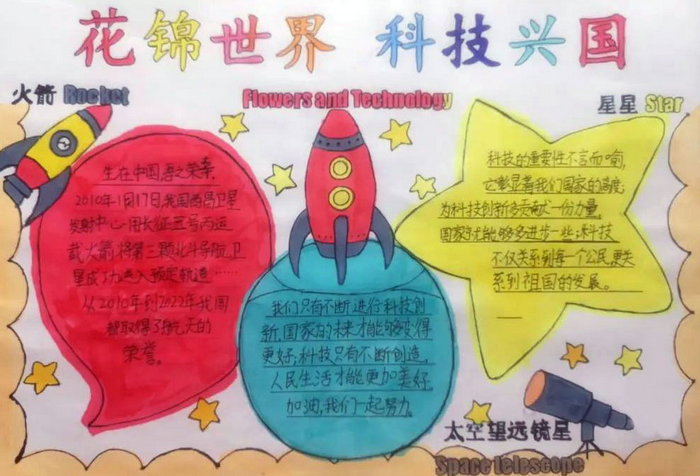 花锦世界 科技兴国
火箭 Rocket
Flowers and Technology
星星 Star
生在中国,吾之荣幸,
2010年1月17日,我国西昌卫星
发射中心用长征三号丙运
载火箭将第三颗北斗导航卫
星成功送入预定轨道……
从2010年到2022年我国
都取得了航天的
荣誉。
我们只有不断进行科技创
新,国家的未来才能够变得
更好;科技只有不断创造,
人民生活才能更加美好
加油,我们一起努力。
科技的重要性不言而喻,
它彰显着我们国家的高度;
为科技创新多贡献一份力量,
国家就能够多进步一些;科技
不仅关系到每个公民更关
系到祖国的发展。
太空望远镜星
Space Telescope